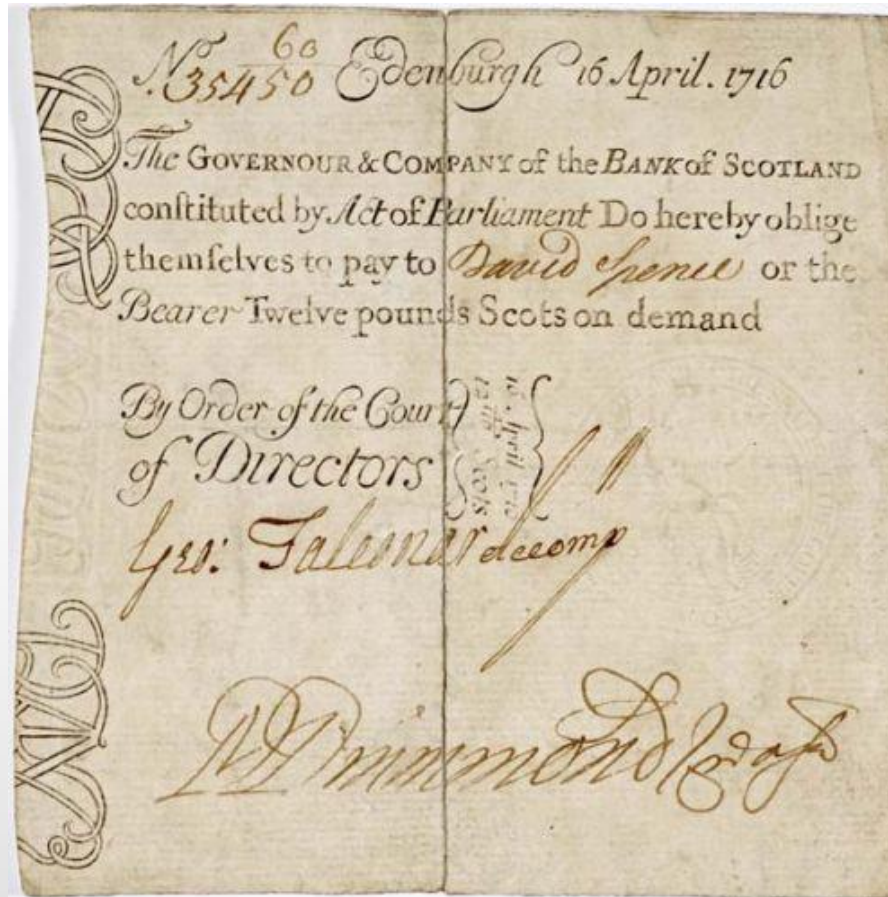 60
No. 35450 Edenburgh 16 April. 1716
The GOVERNOUR & COMPANY of the BANK of SCOTLAND
conſtituted by Act of Parliament Do hereby oblige
themſelves to pay to David Spence or the
Bearer Twelve pounds Scots on demand
By Order of the Court
of Directors
16 April 1716
12 lib Scots
Geo: Falconar accomp
Drummond